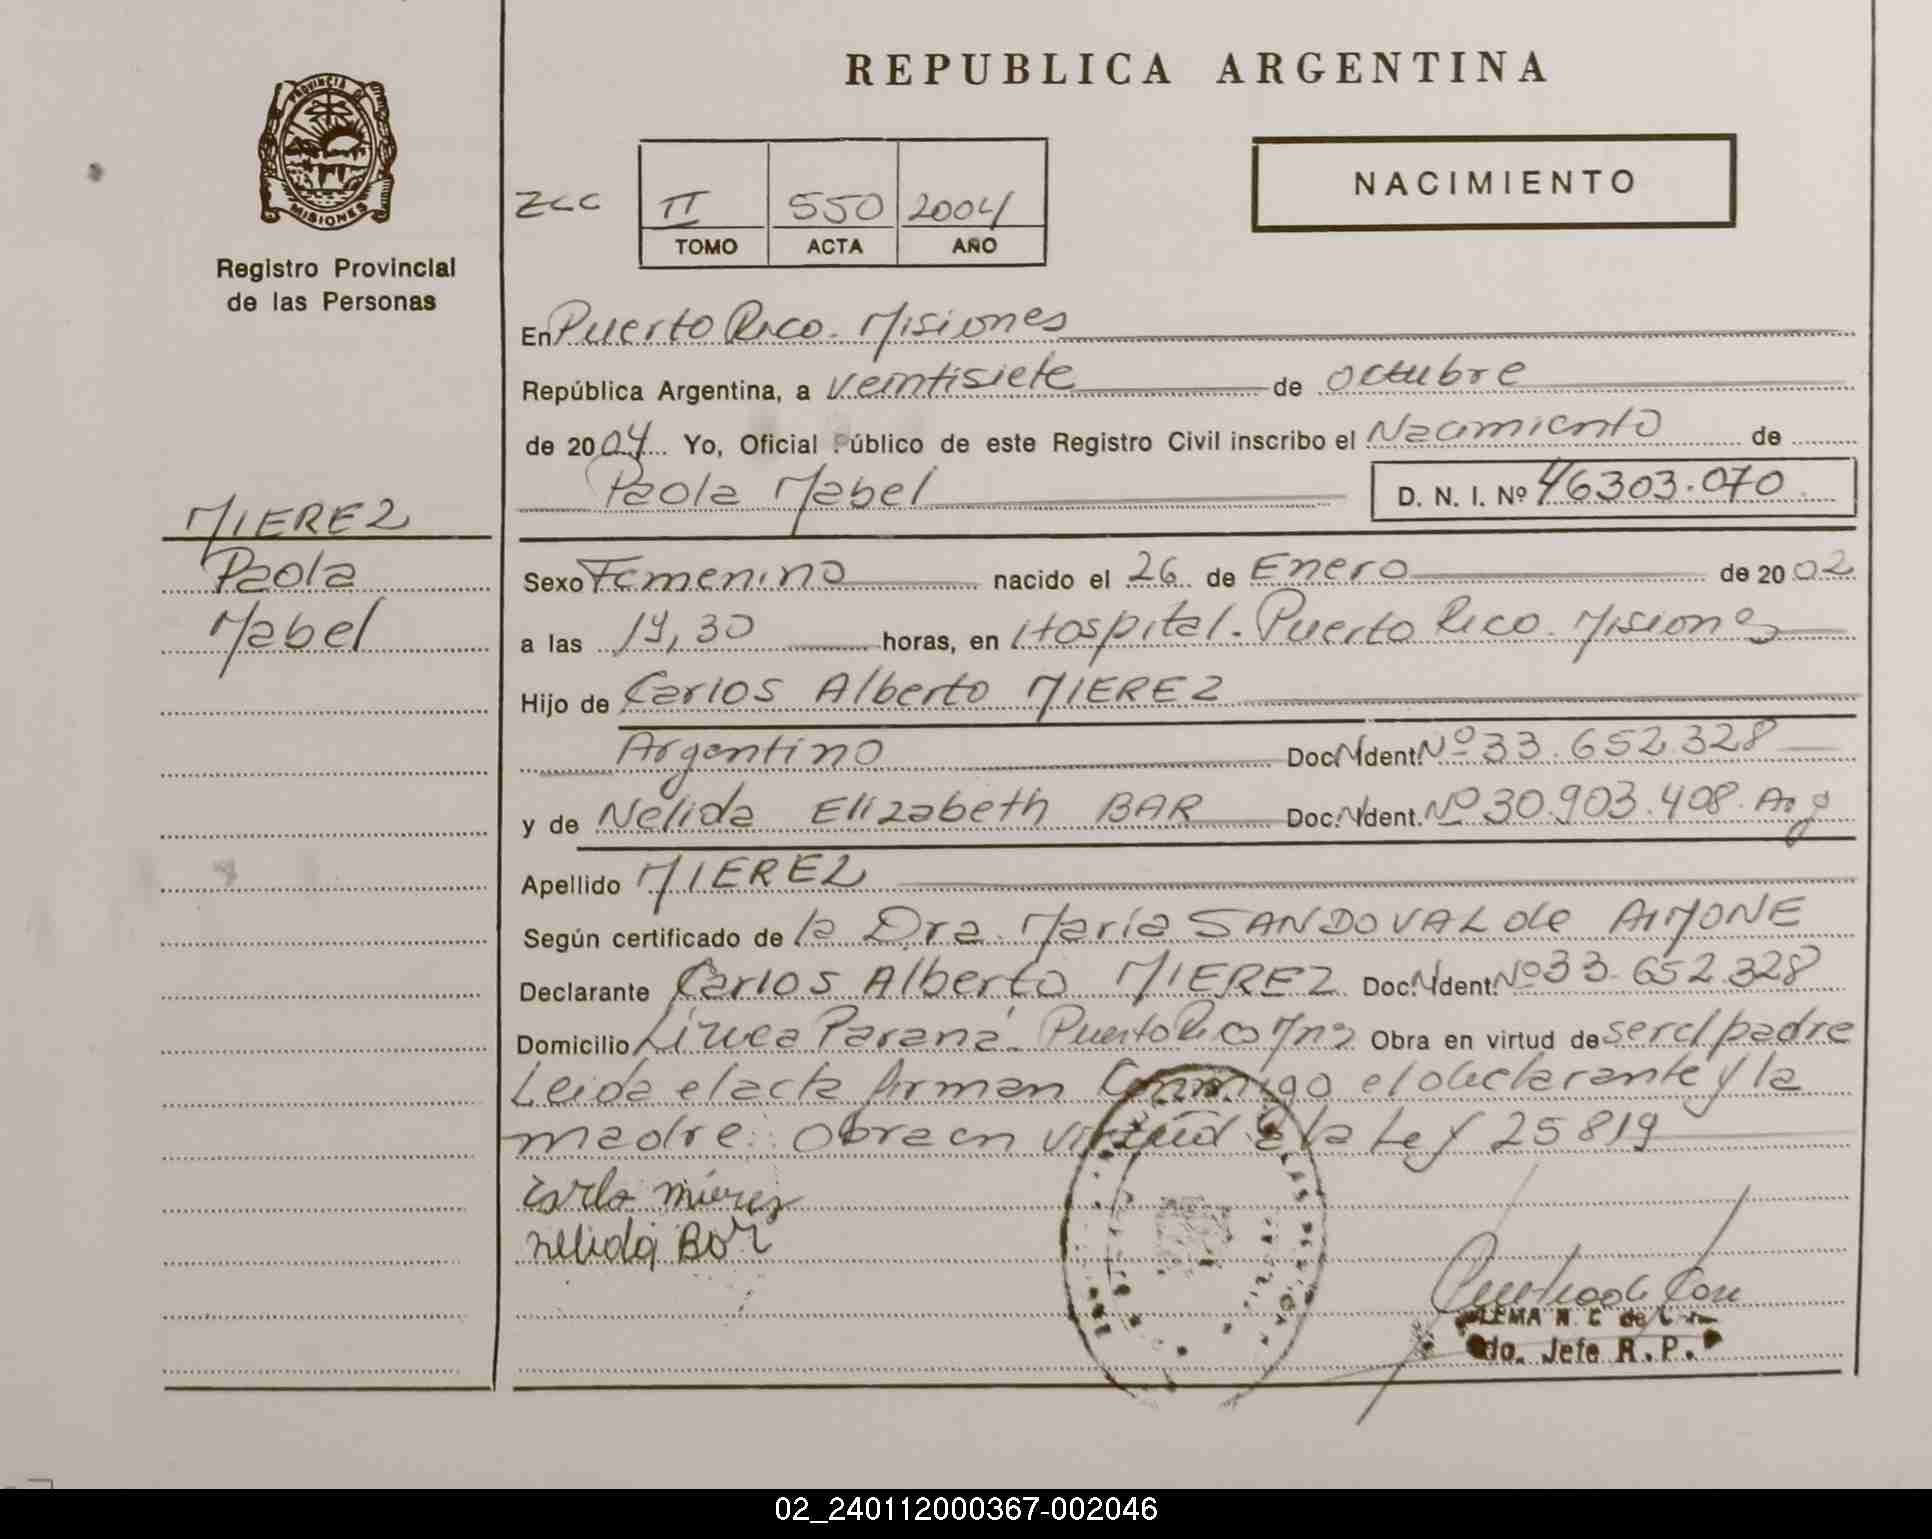 REPUBLICA ARGENTINA
PROVINCIA DE
MISIONES
Registro Provincial
de las Personas
ZCC
II 550 2004
TOMO ACTA AÑO
NACIMIENTO
En Puerto Rico. Misiones
República Argentina, a veintisiete de octubre
de 2004 Yo, Oficial Público de este Registro Civil inscribo el Nacimiento de
Paola Mabel D. N. I. Nº 46303.070
MIEREZ
Paola
Mabel
Sexo Femenino nacido el 26 de Enero de 2002
a las 19,30 horas, en Hospital. Puerto Rico. Misiones
Hijo de Carlos Alberto MIEREZ
Argentino Doc. Ident. Nº 33.652.328
y de Nelida Elizabeth BAR Doc. Ident. Nº 30.903.408. Arg
Apellido MIEREZ
Según certificado de la Dra. María SANDOVAL de AIMONE
Declarante Carlos Alberto MIEREZ Doc. Ident. Nº 33.652.328
Domicilio Línea Paraná. Puerto Rico Mns Obra en virtud de ser el padre
Leida el acta firman Conmigo el declarante y la
madre. Obra en virtud a la Ley 25819
Carlo mierez
nelida Bar
LEMA N. C. de
do. Jefe R. P.
02_240112000367-002046